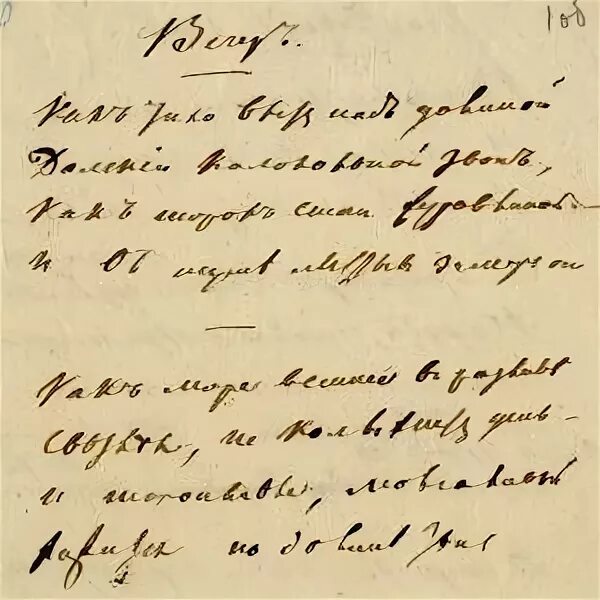 Вечеръ.
Какъ тихо вѣетъ надъ долиной
Далекій колокольный звонъ,
Какъ шорохъ стаи журавлиной—
И въ шумѣ листьевъ замеръ он
Какъ море вешнее в разливѣ
Свѣтлѣя, не колыхнетъ день—
И торопливѣе, молчаливѣй
Ложится по долинѣ тѣнь